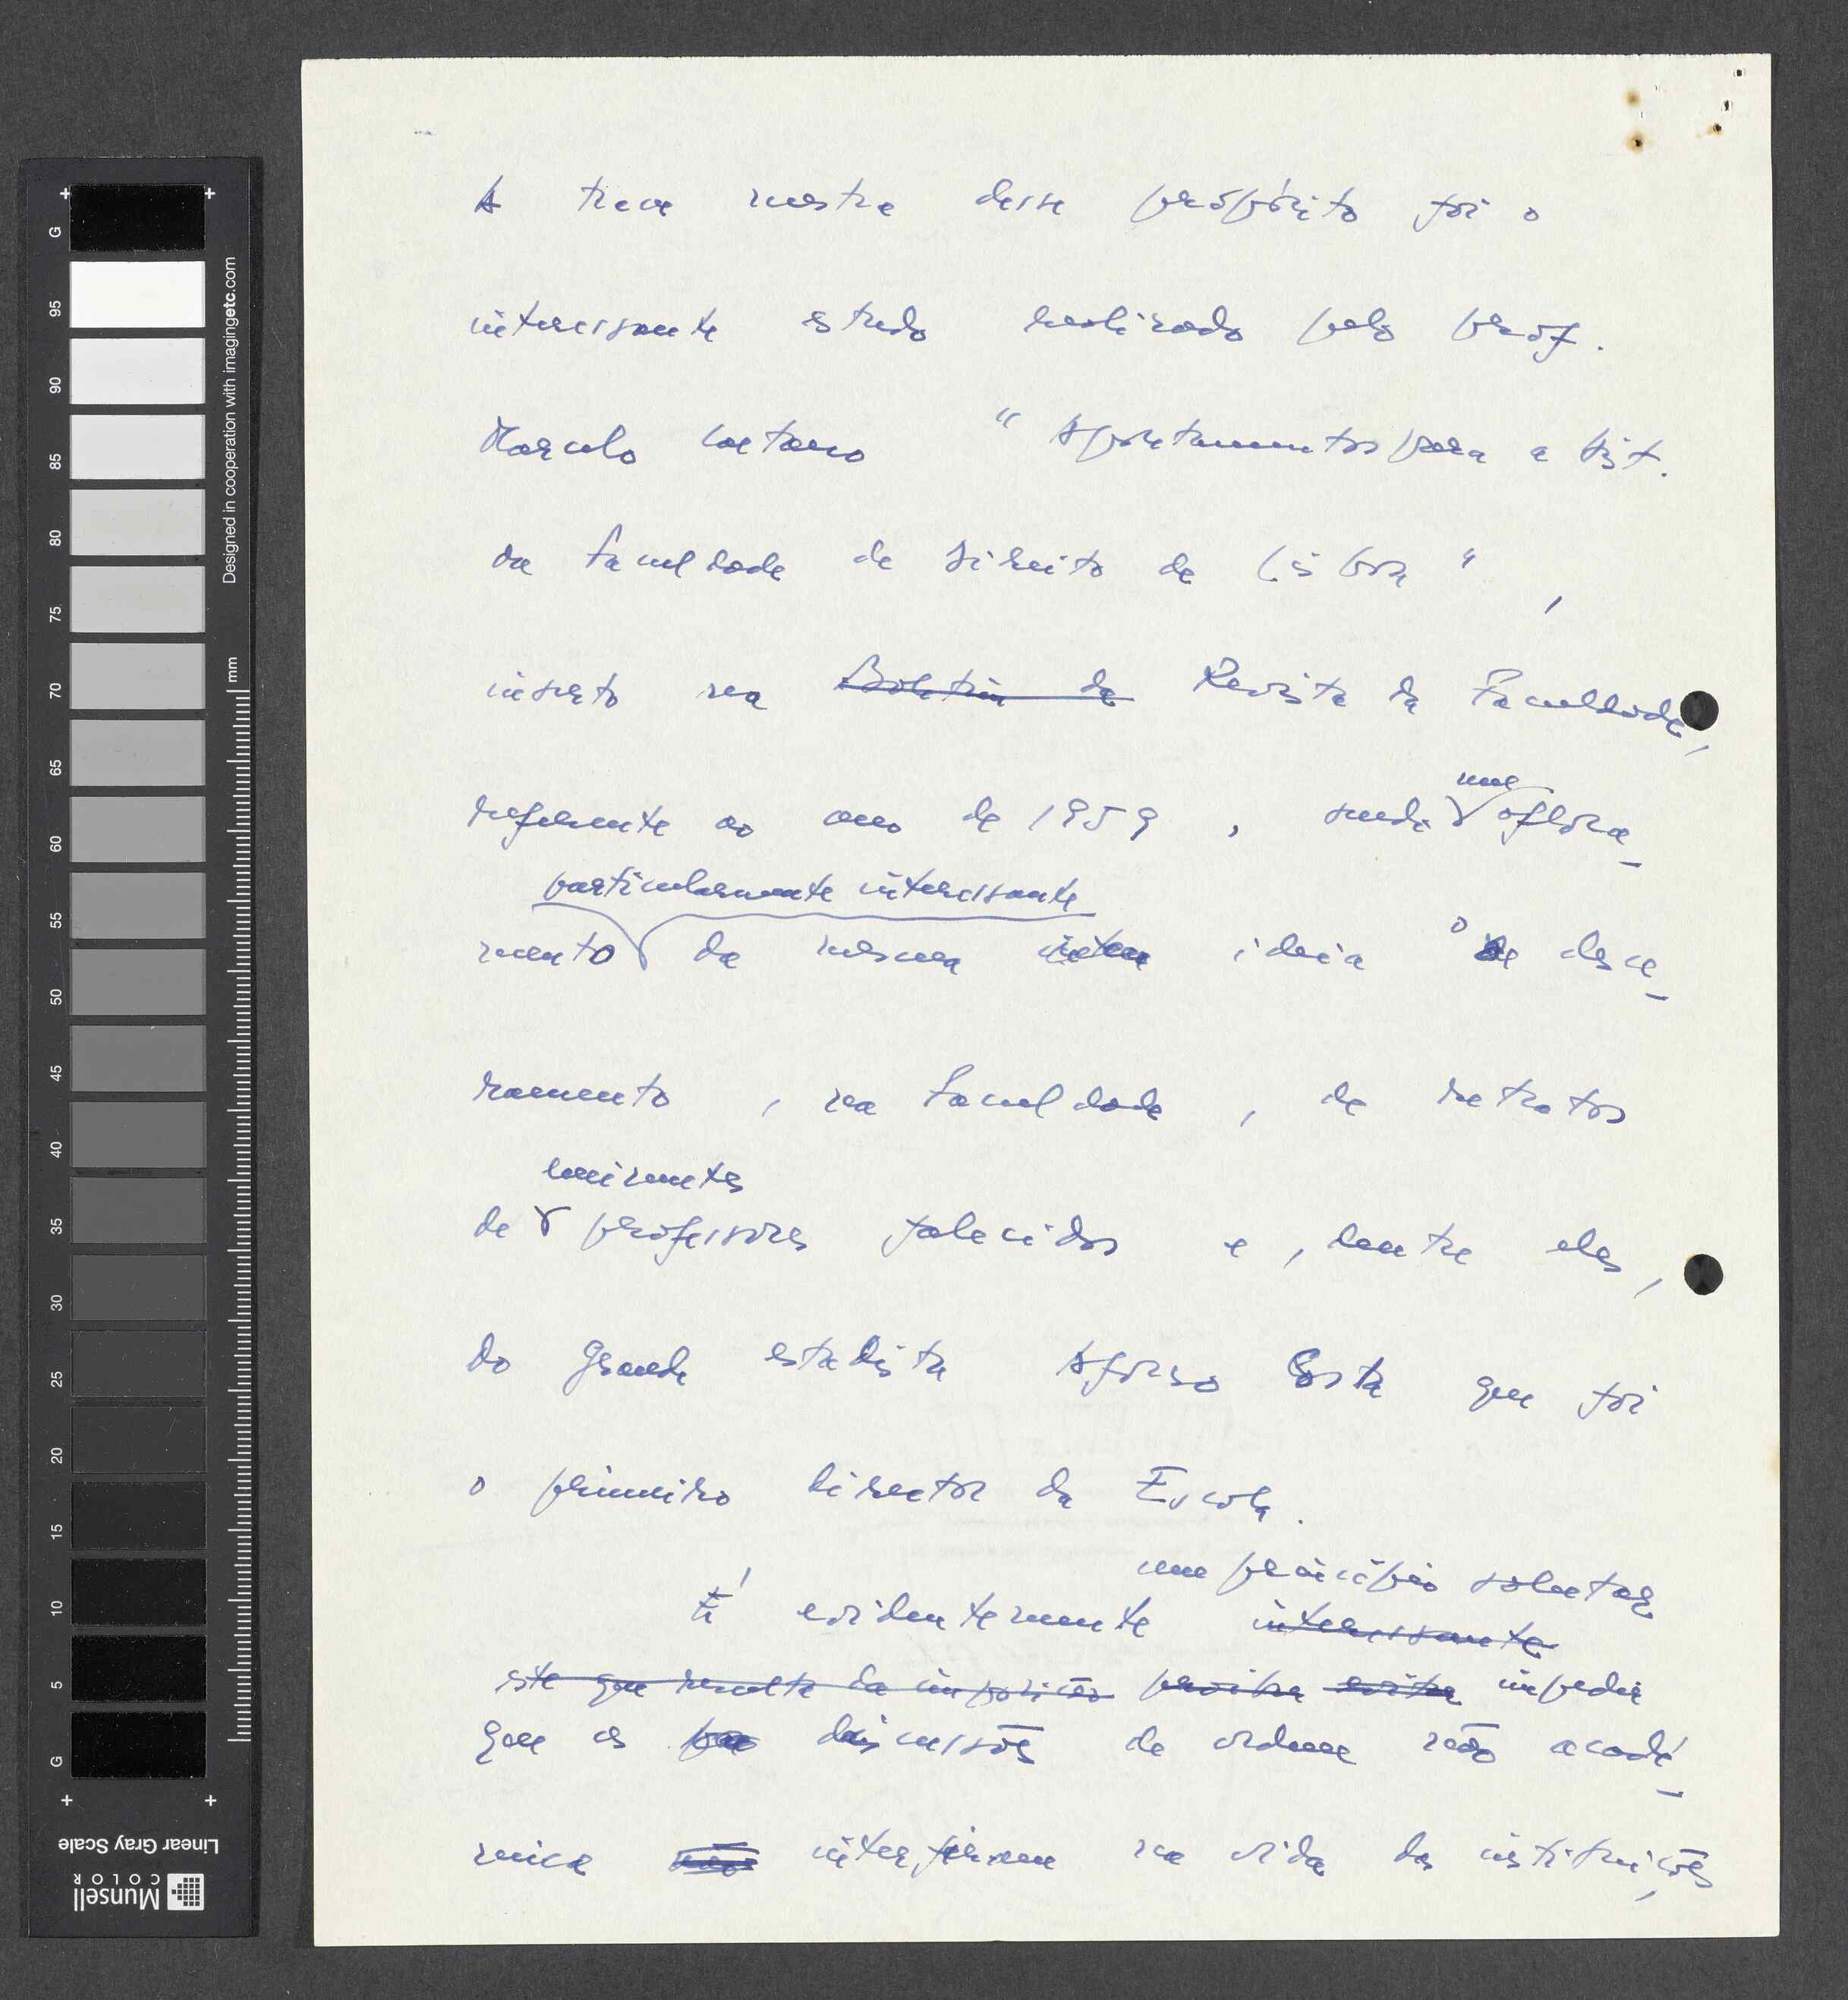 A trave mestra desse propósito foi o
interessante estudo realizado pelo prof.
Marcelo Caetano "Apontamentos para a Hist.
da Faculdade de Direito de Lisboa",
inserto na Boletim da Revista da Faculdade,
referente ao ano de 1959, sendo uma aflora-
mento particularmente interessante da mesma ideia o desce-
ramento, na Faculdade, de retratos
de eminentes professores falecidos e, dentre eles,
do grande estadista Afonso Costa que foi
o primeiro director da Escola.
um princípio salutar
É evidentemente interessante
este que resulta da imposição impedir
que as discussões de ordem não acadé-
mica interfiram na vida das instituições,
G 95 90 85 80 75 70 65 60 55 50 45 40 35 30 25 20 15 10 5 G
mm
Designed in cooperation with imagingetc.com
Linear Gray Scale
Munsell
COLOR